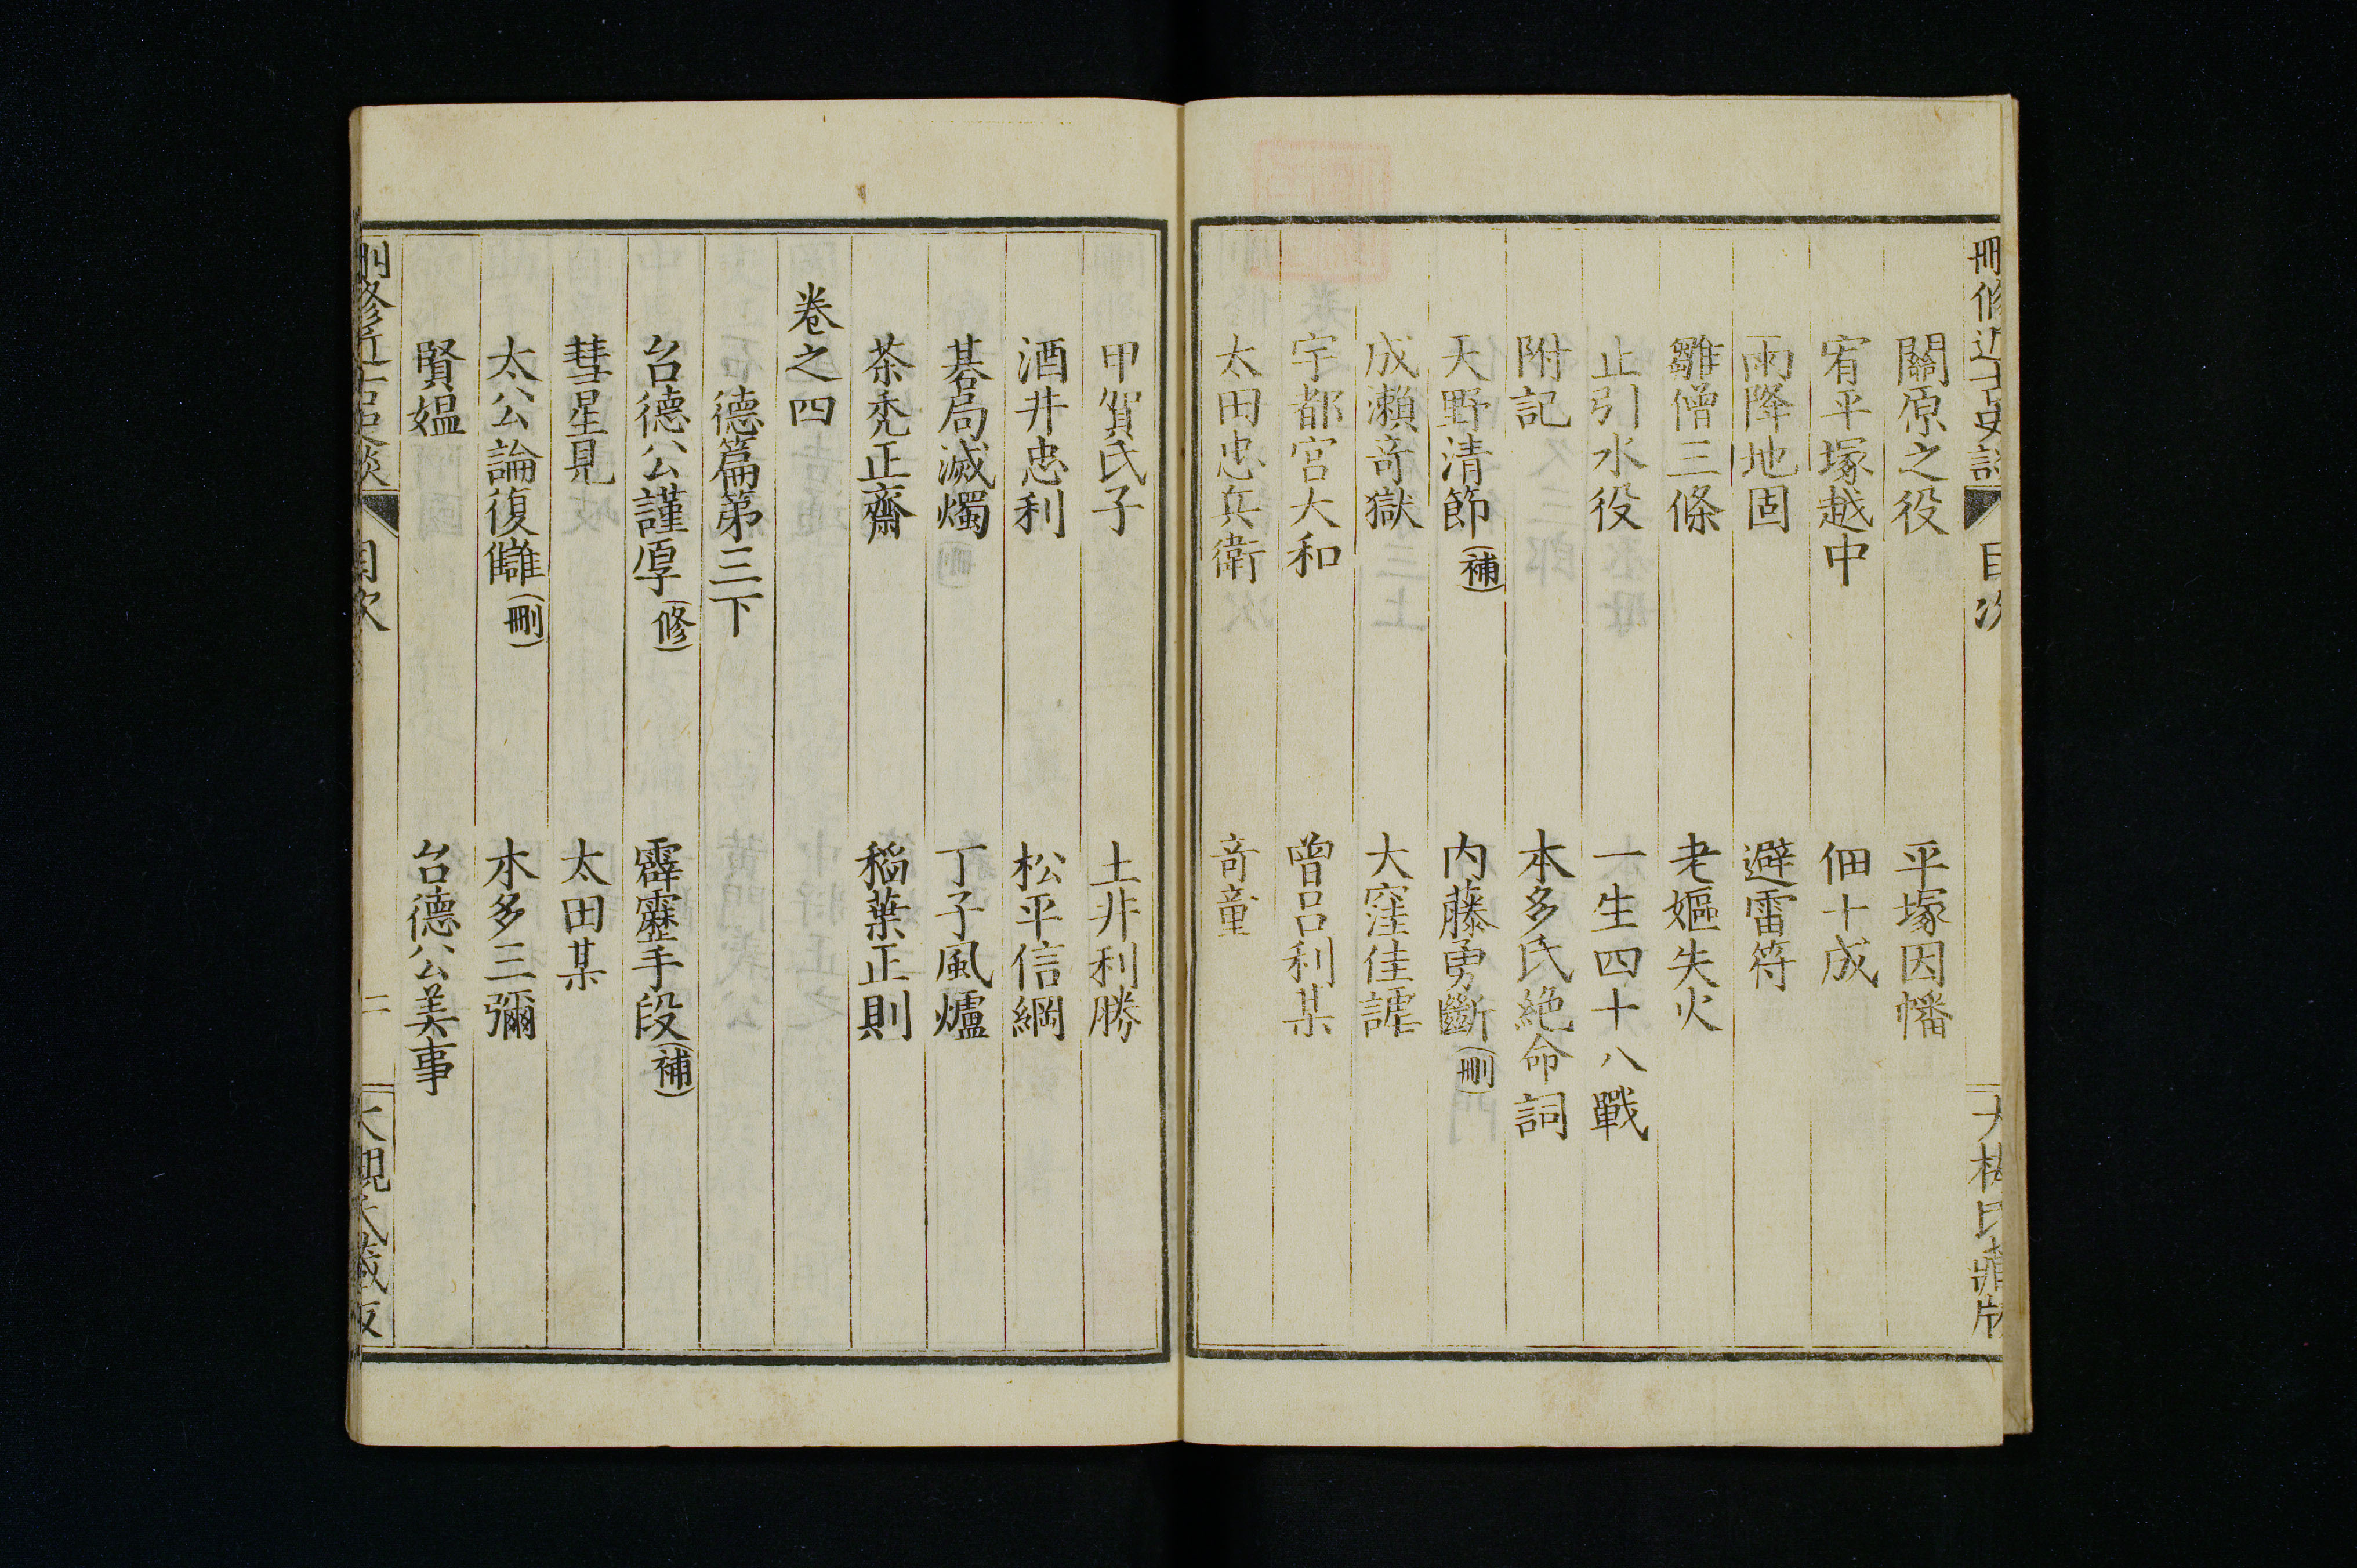 刪修近古史談 目次 大槻氏藏版
關原之役 平塚因幡
宥平塚越中 佃十成
雨降地固 避雷符
雛僧三條 老嫗失火
止引水役 一生四十八戰
附記 本多氏絶命詞
天野清節(補) 内藤勇斷(刪)
成瀬奇獄 大窪佳謔
宇都宮大和 曽呂利某
太田忠兵衛 奇童
甲賀氏子 土井利勝
酒井忠利 松平信綱
碁局滅燭 丁子風爐
茶禿正齋 稲葉正則
卷之四
德篇第三下
台德公謹厚(修) 霹靂手段(補)
彗星見 太田某
太公論復讎(刪) 本多三彌
賢媼 台德公美事
刪修近古史談 目次 二 大槻氏藏版